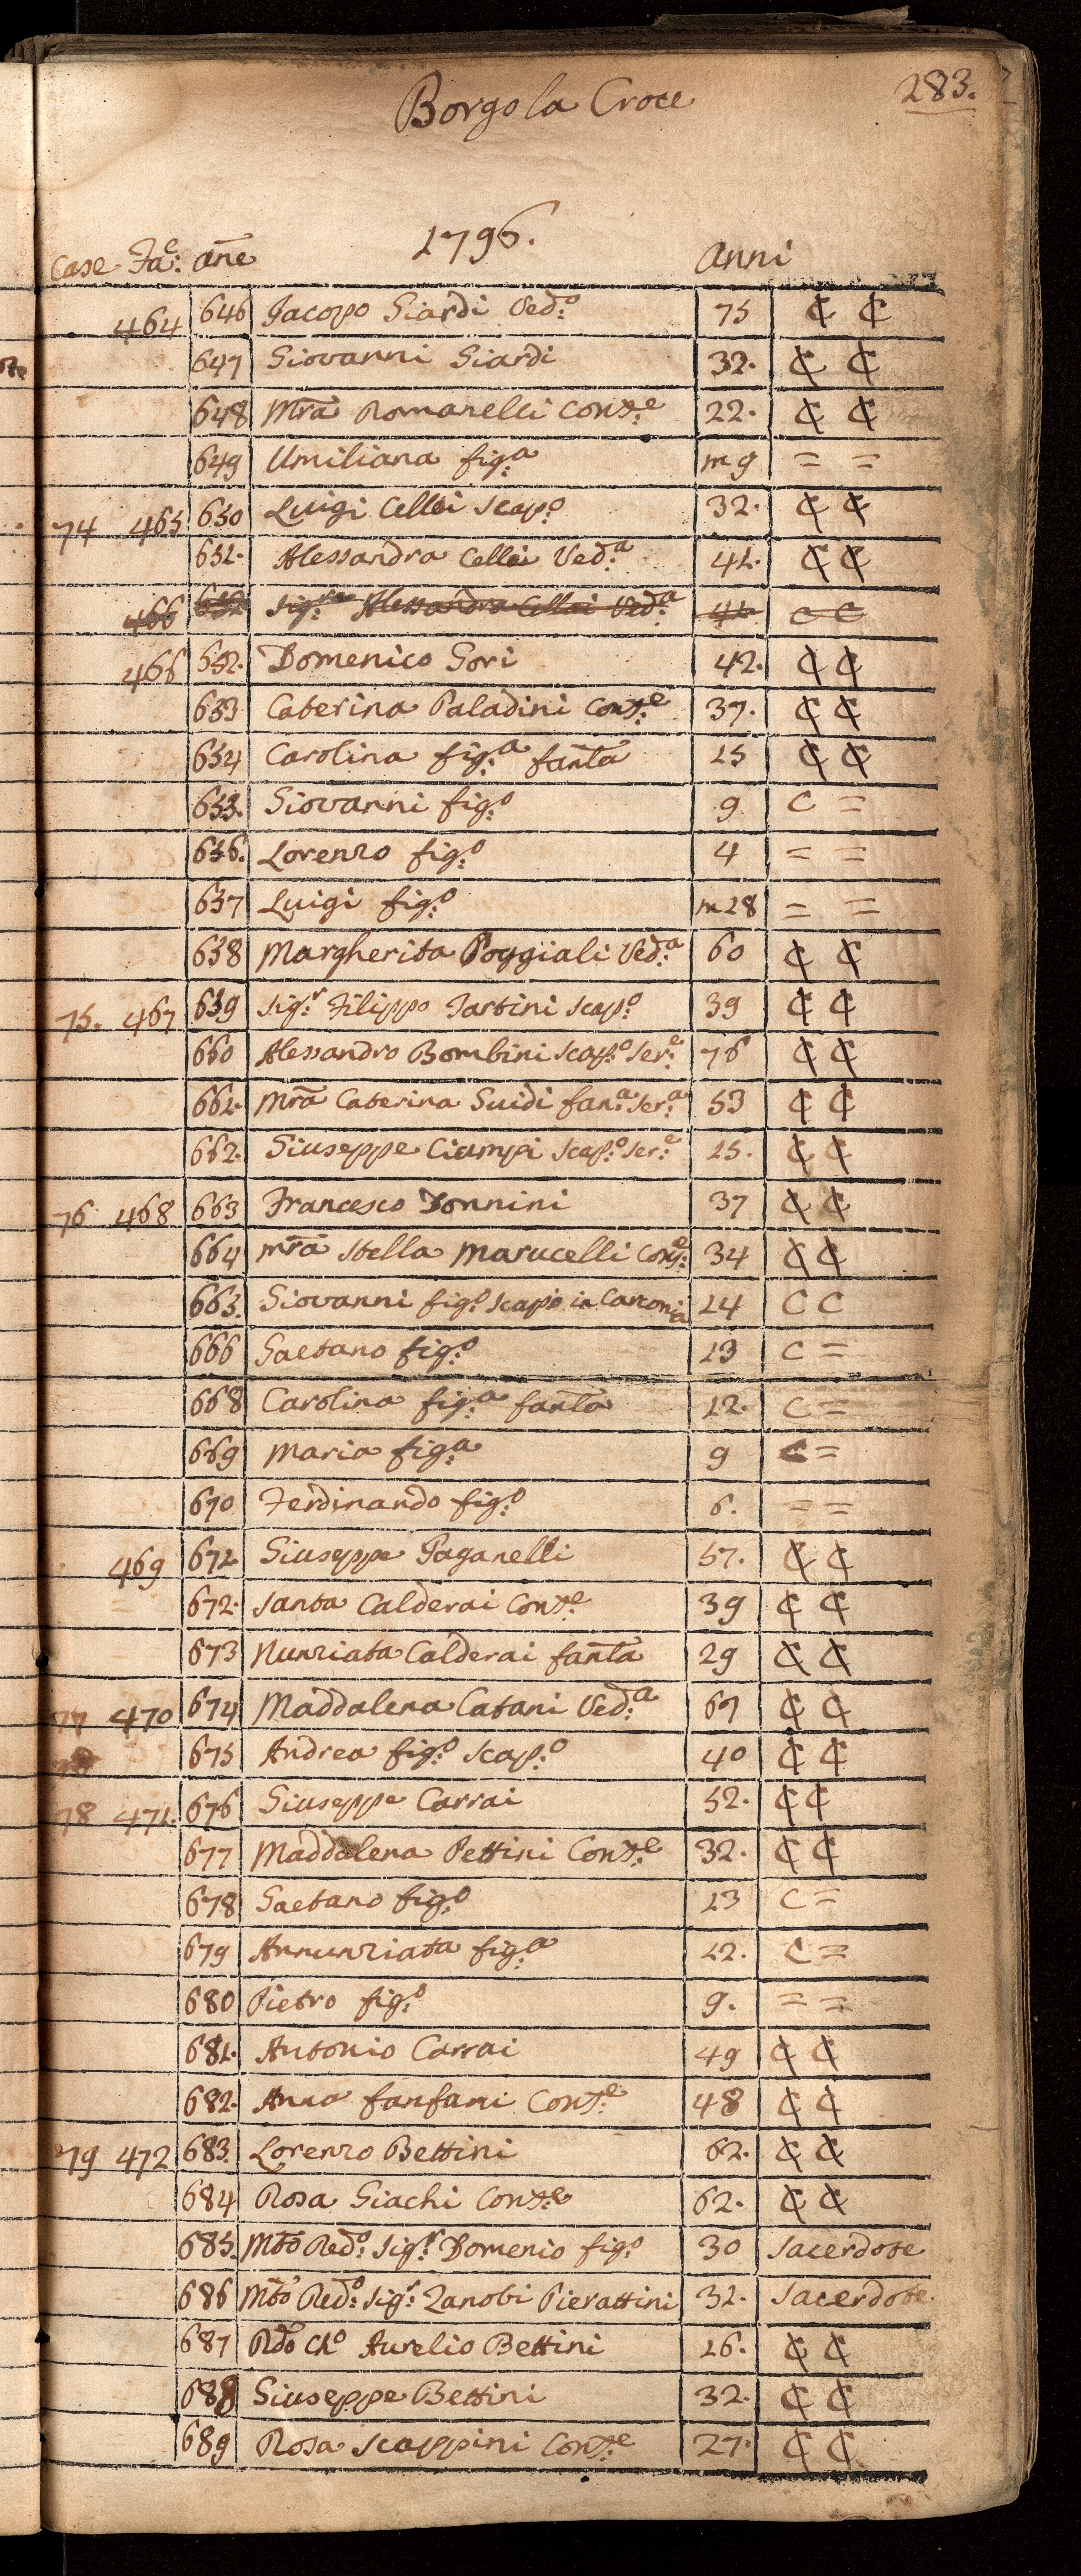 283.
Borgo la Croce
1796.
Case Fa:e Ane Anni
464 646 Jacopo Giardi Ved:o 75 ₵ ₵
647 Giovanni Giardi 32. ₵ ₵
648 Mra Romanelli Cons:e 22. ₵ ₵
649 Umiliana fig:a m 9 = =
74 465 650 Luigi Cellai Scap:o 32. ₵ ₵
651. Alessandra Cellai Ved:a 41. ₵ ₵
466 652 Sig:ra Alessandra Cellai Ved:a 41. C C
466 652. Domenico Gori 42. ₵ ₵
653 Caterina Paladini Cons:e 37. ₵ ₵
654 Carolina fig:a fanla 15 ₵ ₵
655. Giovanni fig:o 9 C =
656. Lorenzo fig:o 4 = =
657 Luigi fig:o m 28 = =
658 Margherita Poggiali Ved:a 60 ₵ ₵
75. 467 659 Sig:r Filippo Tartini Scap:o 39 ₵ ₵
660 Alessandro Bombini Scap:o Ser:e 76 ₵ ₵
661. Mra Caterina Guidi fan:a Ser:a 53 ₵ ₵
662. Giuseppe Ciampi Scap:o Ser:e 25. ₵ ₵
76 468 663 Francesco Donnini 37 ₵ ₵
664 Mra Stella Marucelli Cons:e 34 ₵ ₵
665 Giovanni fig:o Scapo in 14 C C
666 Gaetano fig:o 13 C =
668 Carolina fig:a fanla 12. C =
669 Maria fig:a 9 C =
670 Ferdinando fig:o 6. = =
469 671. Giuseppe Paganelli 57. ₵ ₵
672. Santa Calderai Cons:e 39 ₵ ₵
673 Nunziata Calderai fanla 29 ₵ ₵
77 470 674 Maddalena Catani Ved:a 67 ₵ ₵
675 Andrea fig:o Scap:o 40 ₵ ₵
78 471. 676 Giuseppe Carrai 52. ₵ ₵
677 Maddalena Pettini Cons:e 32. ₵ ₵
678 Gaetano fig:o 13 C =
679 Annunziata fig:a 12. C =
680 Pietro fig:o 9. = =
681. Antonio Carrai 49 ₵ ₵
682. Anna fanfani Cons:e 48 ₵ ₵
79 472 683. Lorenzo Bettini 62. ₵ ₵
684 Rosa Giachi Cons:e 62. ₵ ₵
685. Mto Red:o Sig:r Domenio fig:o 30 Sacerdote
686 Mto Red:o Sig:r Zanobi Pierattini 31. Sacerdote
687 Rdo Ch:o Aurelio Bettini 26. ₵ ₵
688 Giuseppe Bettini 32. ₵ ₵
689 Rosa Scappini Cons:e 27. ₵ ₵